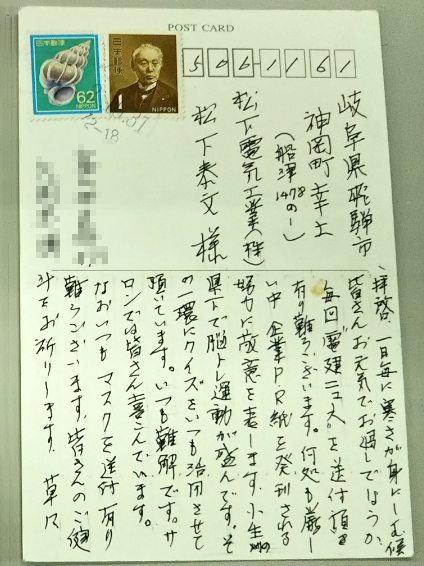 POST CARD
日本郵便
62
NIPPON
日本郵便
1
NIPPON
12-18
506-1161
岐阜県飛騨市
神岡町幸土
(船津1478の一)
松下電気工業(株)
松下泰文様
拝啓、一日毎に寒さが身にしむ候
皆さんお元気でお過しでしょうか。
毎回“廣建ニュース”を送付頂き
有り難うございます。何処も厳し
い中 企業PR紙を発刊される
努力に敬意を表します。小生の
県下で脳トレ運動が盛んです。そ
の一環にクイズをいつも活用させて
頂いています。いつも難解です。サ
ロンでは皆さん喜こんでいます。
なおいつもマスクを送付有り
難うございます。皆さんのご健
斗をお祈りします。 草々